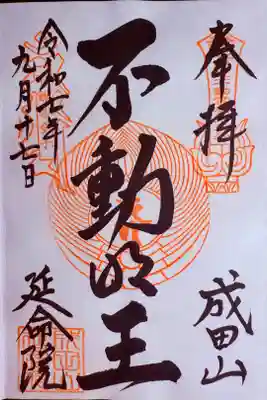 奉拝
成田山
不動明王
令和七年
九月十七日
延命院